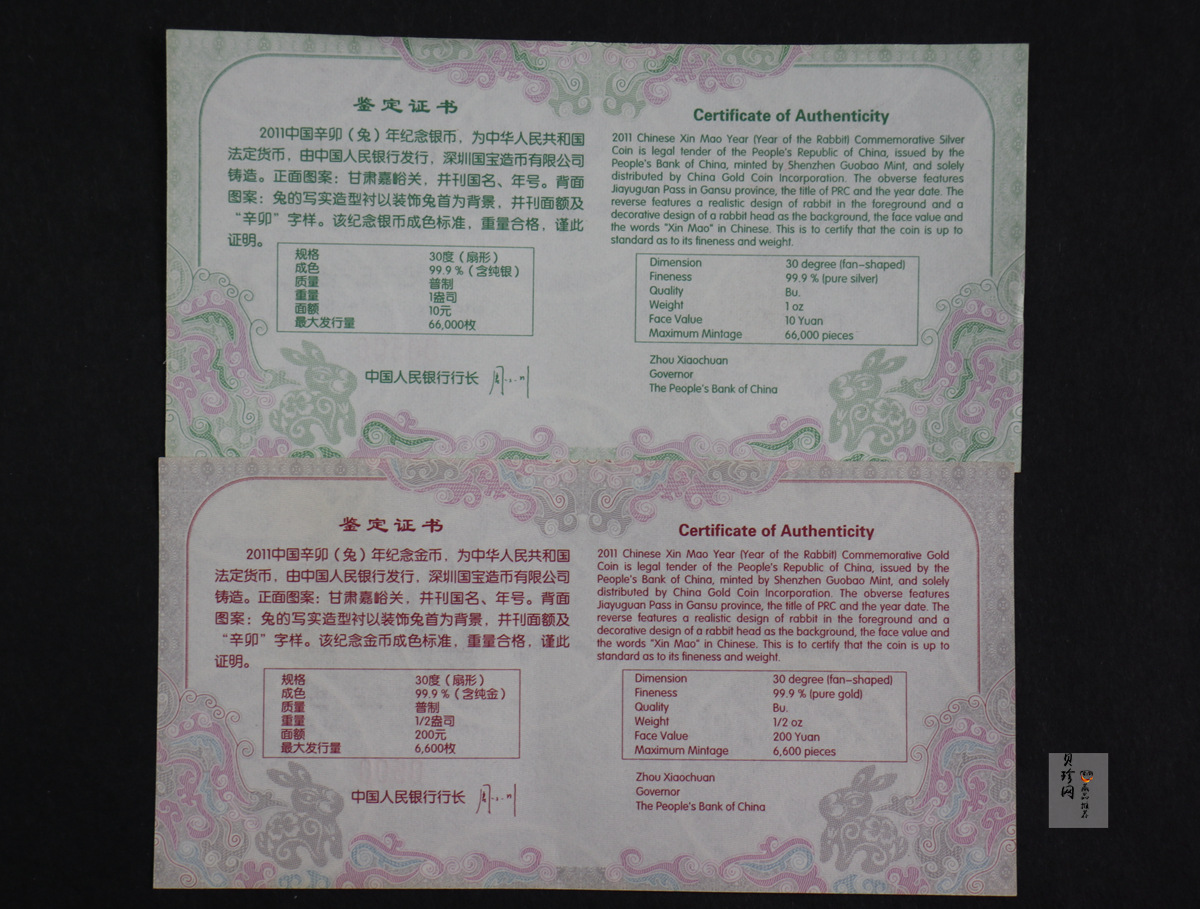 鉴定证书
2011中国辛卯（兔）年纪念银币，为中华人民共和国
法定货币，由中国人民银行发行，深圳国宝造币有限公司
铸造。正面图案：甘肃嘉峪关，并刊国名、年号。背面
图案：兔的写实造型衬以装饰兔首为背景，并刊面额及
“辛卯”字样。该纪念银币成色标准，重量合格，谨此
证明。
规格 30度（扇形）
成色 99.9％（含纯银）
质量 普制
重量 1盎司
面额 10元
最大发行量 66,000枚
中国人民银行行长
Certificate of Authenticity
2011 Chinese Xin Mao Year (Year of the Rabbit) Commemorative Silver
Coin is legal tender of the People's Republic of China, issued by the
People's Bank of China, minted by Shenzhen Guobao Mint, and solely
distributed by China Gold Coin Incorporation. The obverse features
Jiayuguan Pass in Gansu province, the title of PRC and the year date. The
reverse features a realistic design of rabbit in the foreground and a
decorative design of a rabbit head as the background, the face value and
the words "Xin Mao" in Chinese. This is to certify that the coin is up to
standard as to its fineness and weight.
Dimension 30 degree (fan-shaped)
Fineness 99.9 % (pure silver)
Quality Bu.
Weight 1 oz
Face Value 10 Yuan
Maximum Mintage 66,000 pieces
Zhou Xiaochuan
Governor
The People's Bank of China
鉴定证书
2011中国辛卯（兔）年纪念金币，为中华人民共和国
法定货币，由中国人民银行发行，深圳国宝造币有限公司
铸造。正面图案：甘肃嘉峪关，并刊国名、年号。背面
图案：兔的写实造型衬以装饰兔首为背景，并刊面额及
“辛卯”字样。该纪念金币成色标准，重量合格，谨此
证明。
规格 30度（扇形）
成色 99.9％（含纯金）
质量 普制
重量 1/2盎司
面额 200元
最大发行量 6,600枚
中国人民银行行长
Certificate of Authenticity
2011 Chinese Xin Mao Year (Year of the Rabbit) Commemorative Gold
Coin is legal tender of the People's Republic of China, issued by the
People's Bank of China, minted by Shenzhen Guobao Mint, and solely
distributed by China Gold Coin Incorporation. The obverse features
Jiayuguan Pass in Gansu province, the title of PRC and the year date. The
reverse features a realistic design of rabbit in the foreground and a
decorative design of a rabbit head as the background, the face value and
the words "Xin Mao" in Chinese. This is to certify that the coin is up to
standard as to its fineness and weight.
Dimension 30 degree (fan-shaped)
Fineness 99.9 % (pure gold)
Quality Bu.
Weight 1/2 oz
Face Value 200 Yuan
Maximum Mintage 6,600 pieces
Zhou Xiaochuan
Governor
The People's Bank of China
贝珍网
藏品推荐